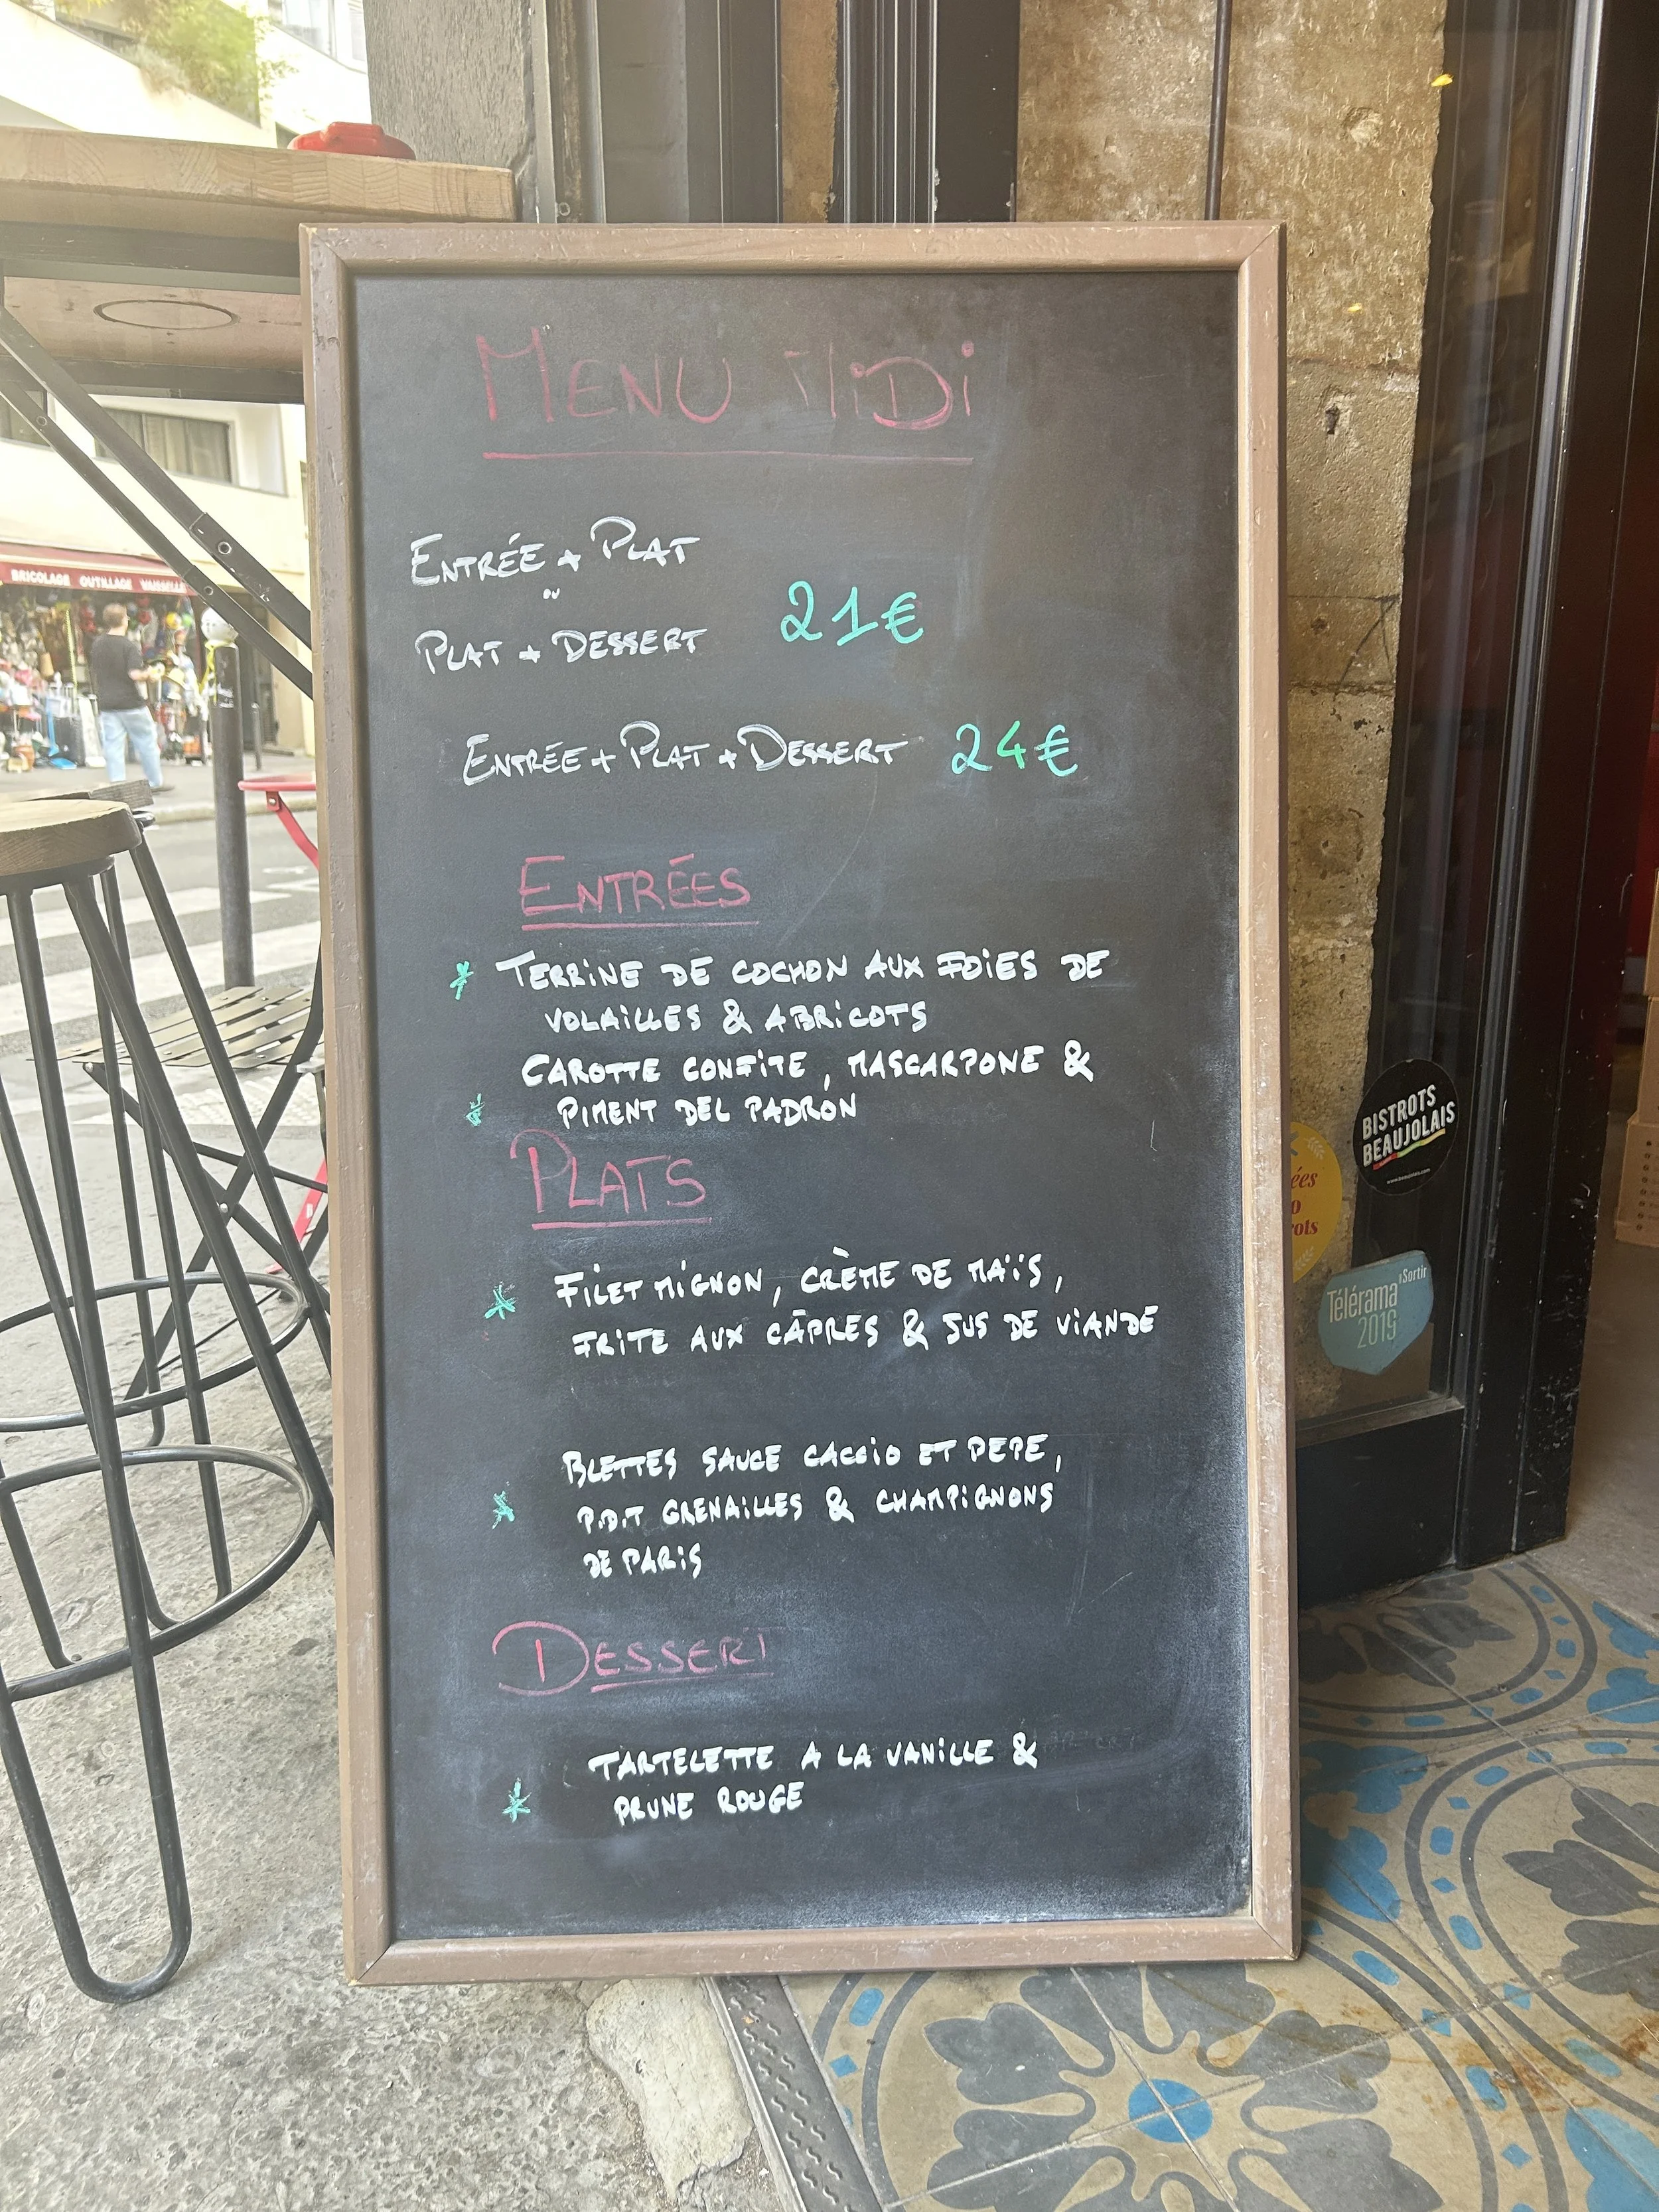 BRICOLAGE OUTILLAGE VAISSELLE
MENU MiDi
ENTRÉE + PLAT
ou
PLAT + DESSERT
21€
ENTRÉE + PLAT + DESSERT 24€
ENTRÉES
* TERRINE DE COCHON AUX FOIES DE
VOLAILLES & ABRICOTS
CAROTTE CONFITE, MASCARPONE &
* PIMENT DEL PADRON
PLATS
* FILET MIGNON, CRÈME DE MAÏS,
FRITE AUX CÂPRES & JUS DE VIANDE
BLETTES SAUCE CACCIO ET PEPE,
* P.D.T GRENAILLES & CHAMPIGNONS
DE PARIS
DESSERT
TARTELETTE A LA VANILLE &
* PRUNE ROUGE
BISTROTS
BEAUJOLAIS
www.beaujolais.com
Sortir
Télérama
2019